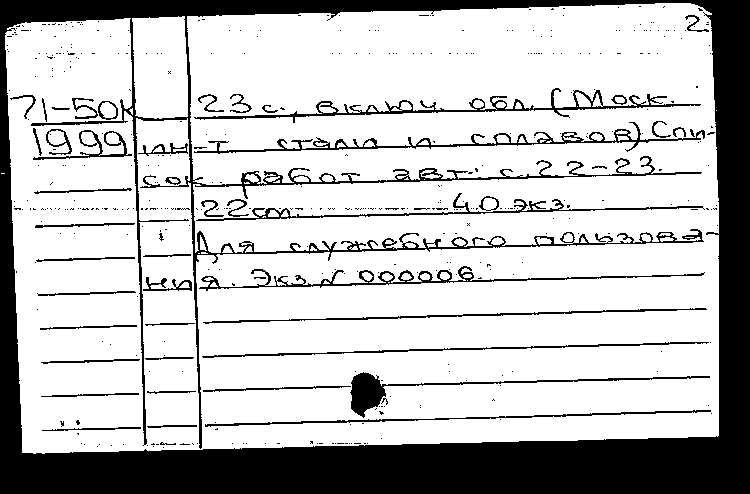 2
71-50к 23 с., включ. обл. (Моск.
1999 ин-т стали и сплавов) Спи-
сок работ авт.: с. 22-23.
22 см. 40 экз.
Для служебного пользова-
ния. Экз N 000006.